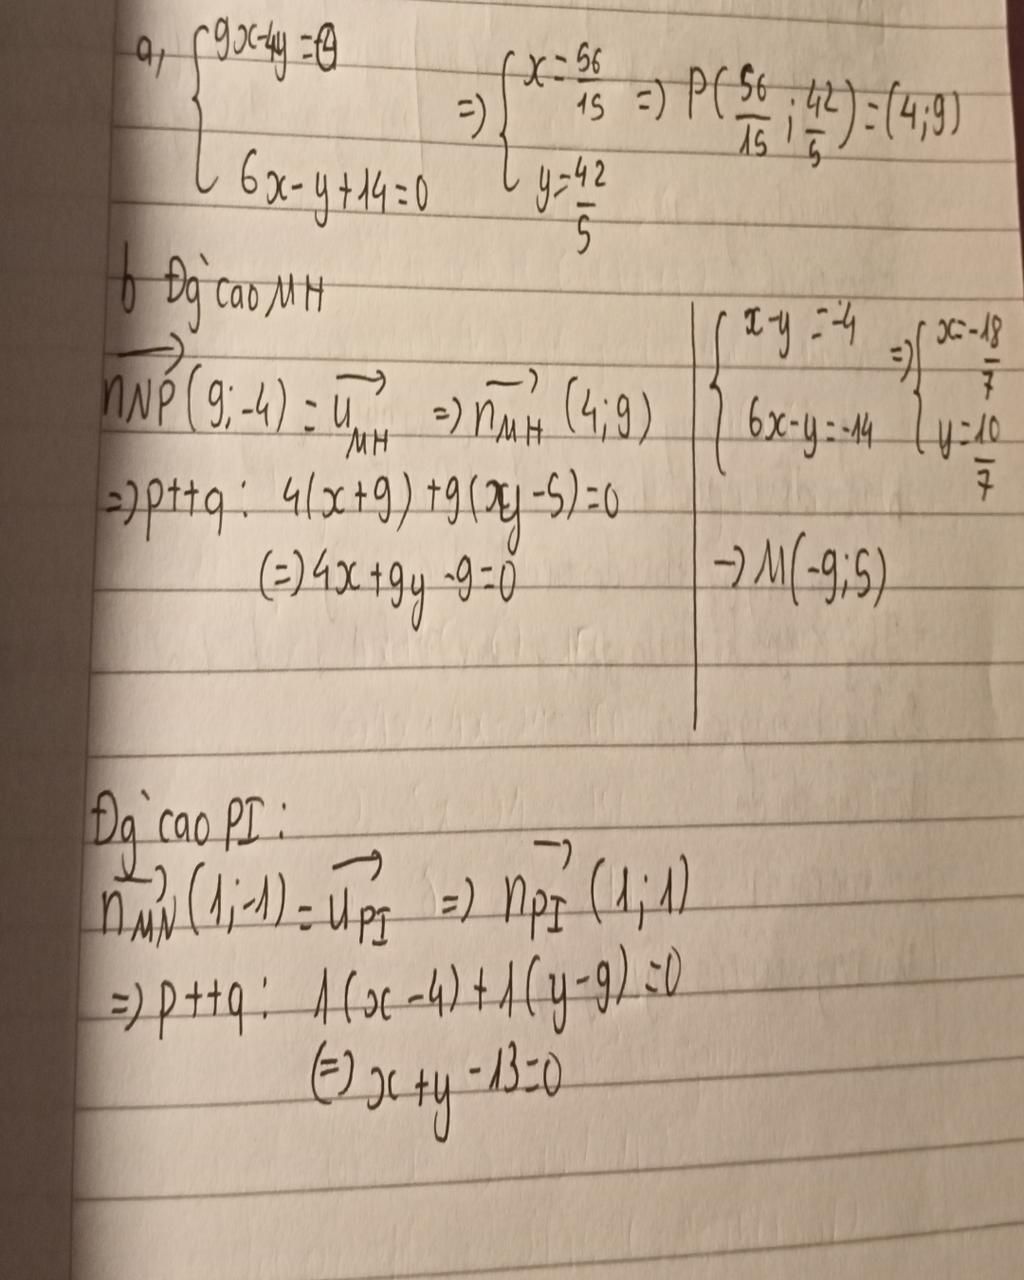 a, { 9x-4y =
6x-y+14=0
=> { x = 56/15
y = 42/5
=> P(56/15 ; 42/5) = (4;9)
b Đg` cao MH
→nNP (9;-4) = →uMH => →nMH (4;9)
=> pttq : 4(x+9) +9(xy-5)=0
(=) 4x+9y -9=0
{ x-y = -4
6x-y=-14
=> { x=-18/7
y=10/7
-> M(-9;5)
Đg` cao PI :
→nMN (1;-1) = →uPI => →nPI (1;1)
=> pttq : 1(x-4)+1(y-9)=0
(=) x+y -13=0